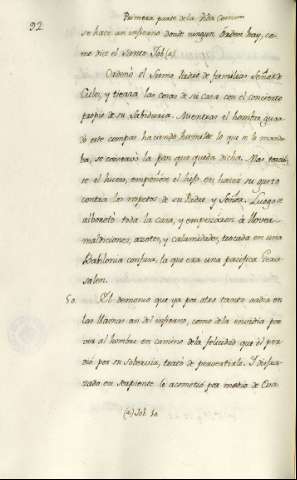 92
Primera parte de la Vida Comun
se hacé un infierno donde ningun órden hay, co-
mo dice el Santo Job (a)
Ordenó el Sumo Padre de familias Señor de
Cielos, y tierra las cosas de su casa con el concierto
propio de su Sabiduria. Mientras el hombre guar-
dó este compas haciendo humilde lo que se le manda-
ba, se conservó la paz que queda dicha. Mas torcio-
se el
contra los respetos de su Padre, y Señor. Luego se
alborotó toda la casa, y empezaron á llover
maldiciones, azotes, y calamidades, trocada en una
Babilonia confusa, la que era una pacifica Jeru-
salen.
50. El demonio que ya por
las llamas asi del infierno, como de la envidia por
ver al hombre en camino de la felicidad que él per-
dió por su soberuia, trató de pervertirle. I disfra-
zado en serpiente le acometió por medio de Eva
(a) Job. 10